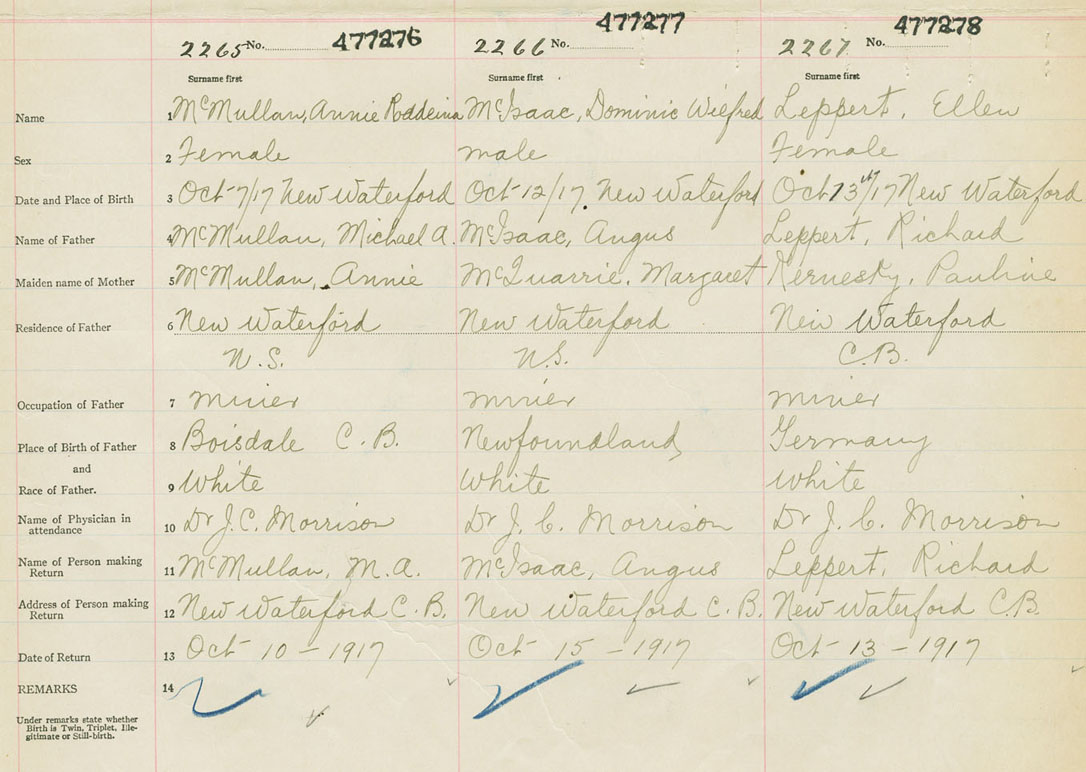 2265 No. 477276 2266 No. 477277 2267 No. 477278
Surname first Surname first Surname first
Name 1 McMullan, Annie Roddeina McIsaac, Dominic Wilfred Leppert, Ellen
Sex 2 Female male Female
Date and Place of Birth 3 Oct 7/17 New Waterford Oct 12/17. New Waterford Oct 13th/17 New Waterford
Name of Father 4 McMullan, Michael A. McIsaac, Angus Leppert, Richard
Maiden name of Mother 5 McMullan, Annie McQuarrie, Margaret Kernesky, Pauline
Residence of Father 6 New Waterford New Waterford New Waterford
N.S. N.S. C.B.
Occupation of Father 7 miner miner miner
Place of Birth of Father 8 Boisdale C.B. Newfoundland Germany
and
Race of Father. 9 White White White
Name of Physician in attendance 10 Dr J.C. Morrison Dr J. C. Morrison Dr J. C. Morrison
Name of Person making Return 11 McMullan, M.A. McIsaac, Angus Leppert, Richard
Address of Person making Return 12 New Waterford C.B. New Waterford C.B. New Waterford C.B.
Date of Return 13 Oct 10 - 1917 Oct 15 - 1917 Oct 13 - 1917
REMARKS 14
Under remarks state whether
Birth is Twin, Triplet, Ille-
gitimate or Still-birth.